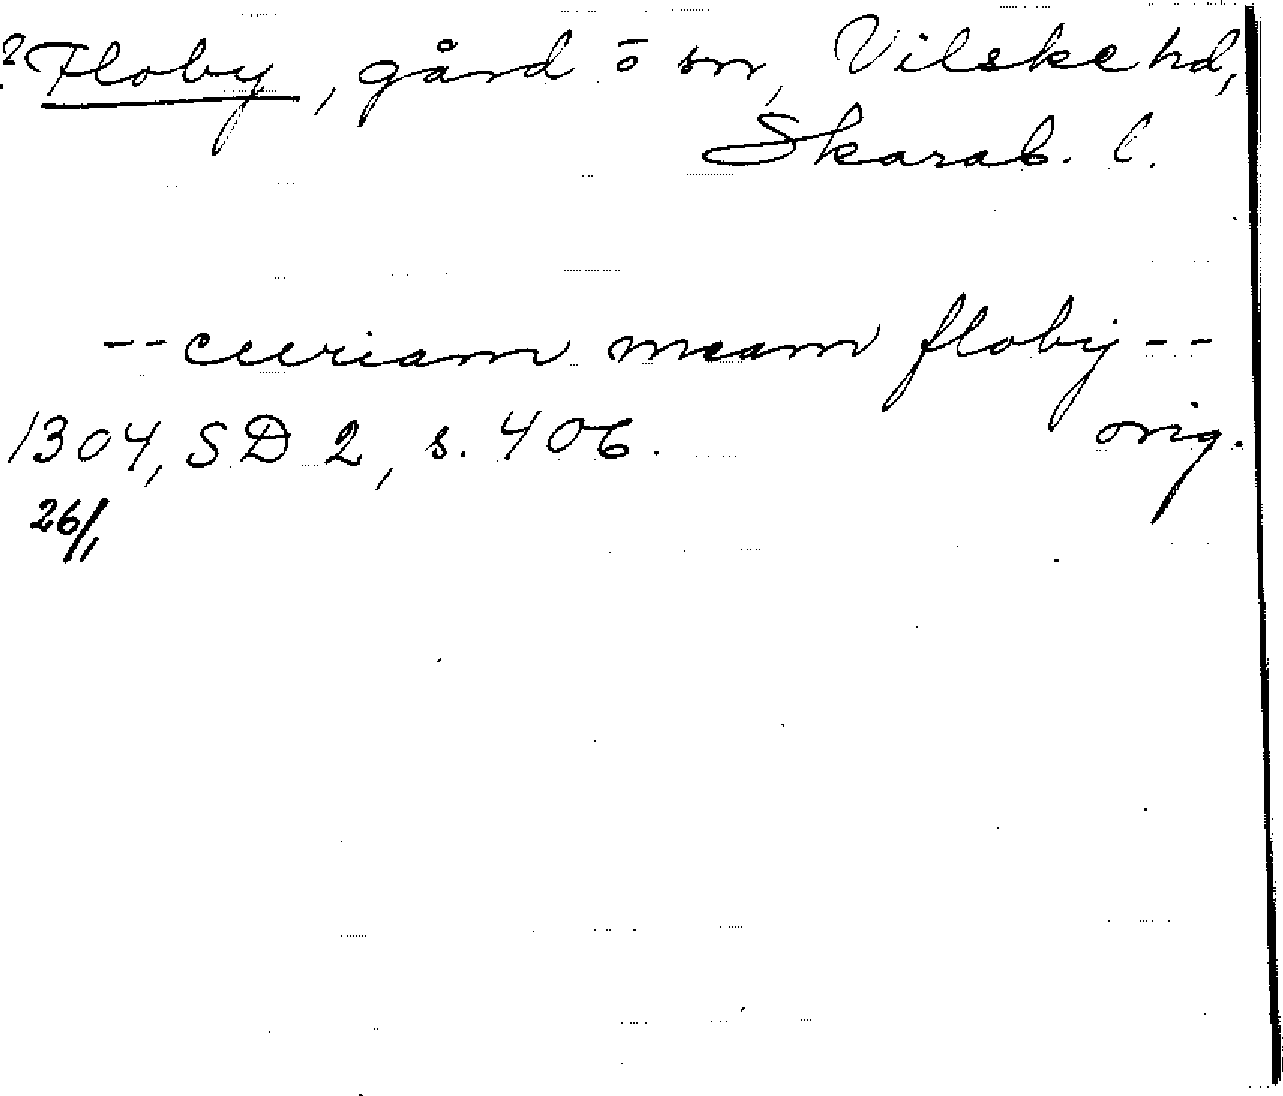 ? Floby, gård o̅ sn, Vilske hd,
Skarab. l.
-- curiam meam floby --
1304, SD 2, s. 406. orig.
26/1